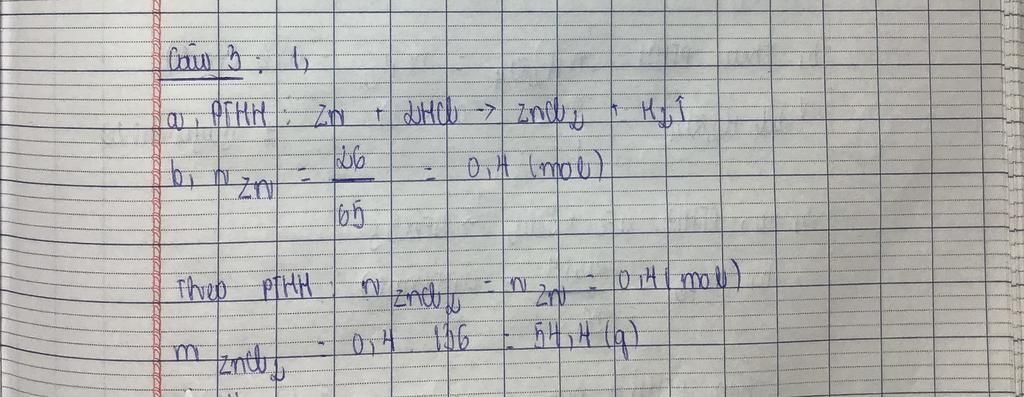 Câu 3 : 1,
a, PTHH : Zn + 2HCl → ZnCl₂ + H₂↑
b, n Zn = 26/65 = 0,4 (mol)
Theo PTHH : n ZnCl₂ = n Zn = 0,4 (mol)
m ZnCl₂ = 0,4 . 136 = 54,4 (g)